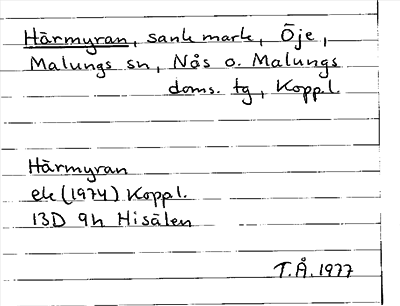 Härmyran, sank mark, Öje,
Malungs sn, Nås o. Malungs
doms. tg, Koppl.
Härmyran
ek (1974) Koppl.
13D 9h Hisälen
T.Å. 1977